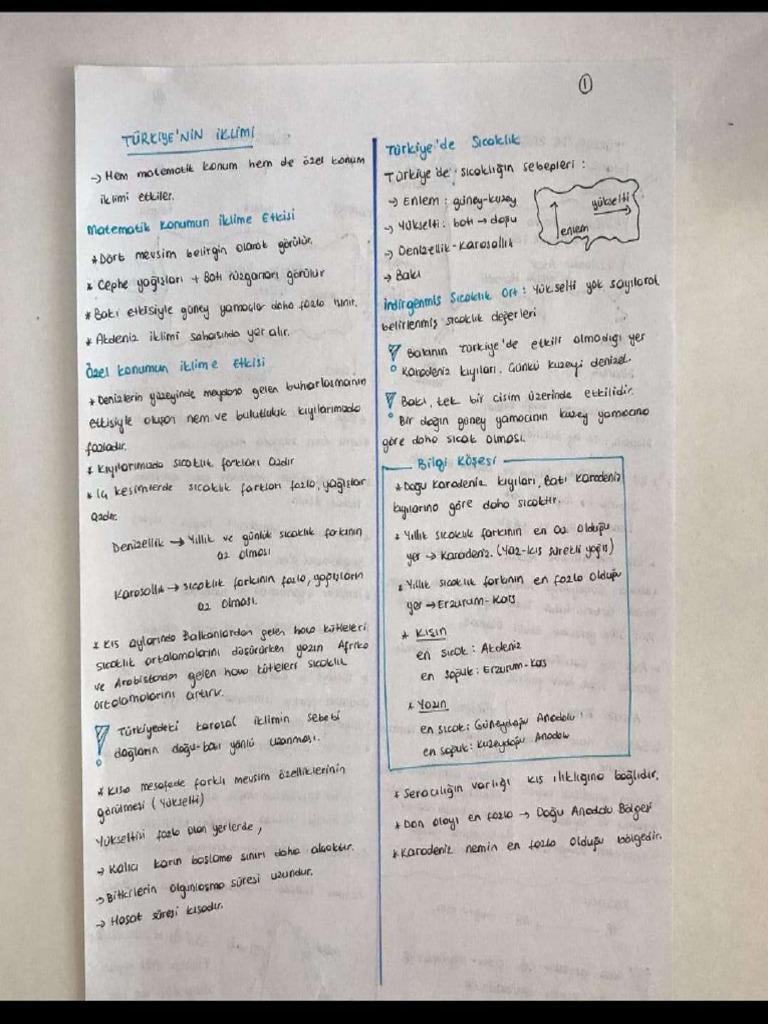 1
TÜRKİYE'NİN İKLİMİ
→ Hem matematik konum hem de özel konum
iklimi etkiler.
Matematik Konumun İklime Etkisi
* Dört mevsim belirgin olarak görülür.
* Cephe yağışları + Batı rüzgarları görülür
* Bakı etkisiyle güney yamaçlar daha fazla ısınır.
* Akdeniz iklimi sahasında yer alır.
Özel Konumun İklime Etkisi
* Denizlerin yüzeyinde meydana gelen buharlaşmanın
etkisiyle oluşan nem ve bulutluluk kıyılarımızda
fazladır.
* Kıyılarımızda sıcaklık farkları azdır
* İç kesimlerde sıcaklık farkları fazla, yağışlar
azdır.
Denizellik → Yıllık ve günlük sıcaklık farkının
az olması
Karasallık → sıcaklık farkının fazla, yağışların
az olması.
* Kış aylarında Balkanlardan gelen hava kütleleri
sıcaklık ortalamalarını düşürürken yazın Afrika
ve Arabistandan gelen hava kütleleri sıcaklık
ortalamalarını artırır.
! Türkiyedeki karasal iklimin sebebi
dağların doğu-batı yönlü uzanması.
* Kısa mesafede farklı mevsim özelliklerinin
görülmesi (Yükselti)
Yükseltisi fazla olan yerlerde,
→ Kalıcı karın başlama sınırı daha alçaktır.
→ Bitkilerin olgunlaşma süresi uzundur.
→ Hasat süresi kısadır.
Türkiye'de Sıcaklık
Türkiye'de sıcaklığın sebepleri :
→ Enlem : güney-kuzey
→ Yükselti : batı → doğu
→ Denizellik-Karasallık
→ Bakı
yükselti
enlem
İndirgenmiş Sıcaklık Ort : Yükselti yok sayılarak
belirlenmiş sıcaklık değerleri
! Bakının Türkiye'de etkili olmadığı yer
Karadeniz kıyıları. Çünkü kuzeyi denizel.
! Bakı, tek bir cisim üzerinde etkilidir.
Bir dağın güney yamacının kuzey yamacına
göre daha sıcak olması.
Bilgi Köşesi
* Doğu Karadeniz kıyıları, Batı Karadeniz
kıyılarına göre daha sıcaktır.
* Yıllık sıcaklık farkının en az olduğu
yer → Karadeniz. (Yaz-kış sürekli yağış)
* Yıllık sıcaklık farkının en fazla olduğu
yer → Erzurum-Kars
* Kışın
en sıcak : Akdeniz
en soğuk : Erzurum-Kars
* Yazın
en sıcak : Güneydoğu Anadolu
en soğuk : Kuzeydoğu Anadolu
* Seracılığın varlığı kış ılıklığına bağlıdır.
* Don olayı en fazla → Doğu Anadolu Bölgesi
* Karadeniz nemin en fazla olduğu bölgedir.